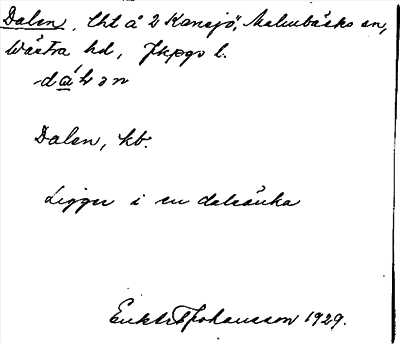 Dalen, lht å 2 Kansjö, Malmbäcks sn,
Västra hd, Jkpgs l.
Dalen, kb.
Ligger i en dalsänka
Johansson 1929.